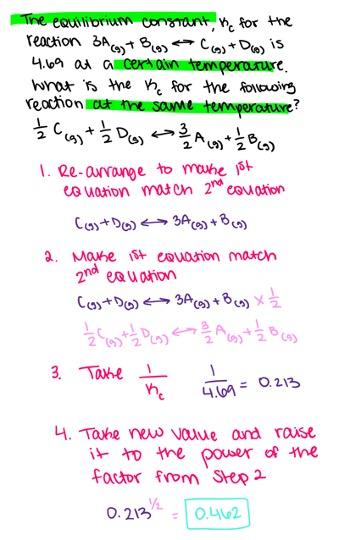 The equilibrium constant, Kc for the
reaction 3A(g) + B(g) ↔ C(g) + D(g) is
4.69 at a certain temperature.
What is the Kc for the following
reaction at the same temperature?
1/2 C(g) + 1/2 D(g) ↔ 3/2 A(g) + 1/2 B(g)
1. Re-arrange to make 1st
equation match 2nd equation
C(g) + D(g) ↔ 3A(g) + B(g)
2. Make 1st equation match
2nd equation
C(g) + D(g) ↔ 3A(g) + B(g) × 1/2
1/2 C(g) + 1/2 D(g) ↔ 3/2 A(g) + 1/2 B(g)
3. Take 1/Kc 1/4.69 = 0.213
4. Take new value and raise
it to the power of the
factor from Step 2
0.213^1/2 = 0.462